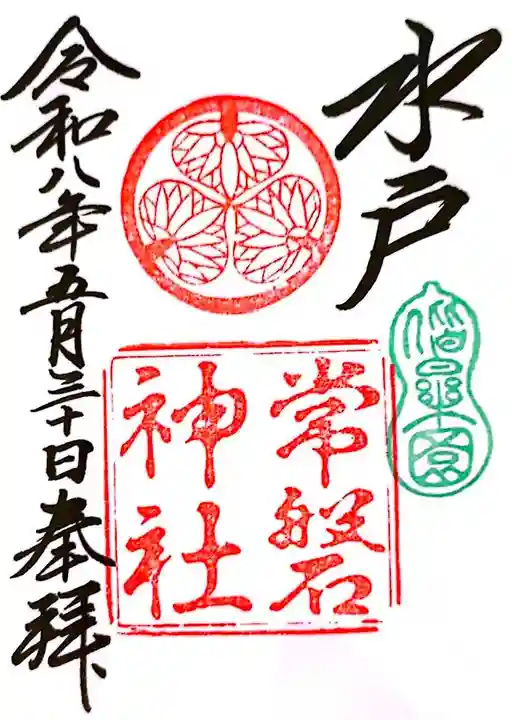 水戸
偕楽園
常磐
神社
令和八年五月三十日奉拝